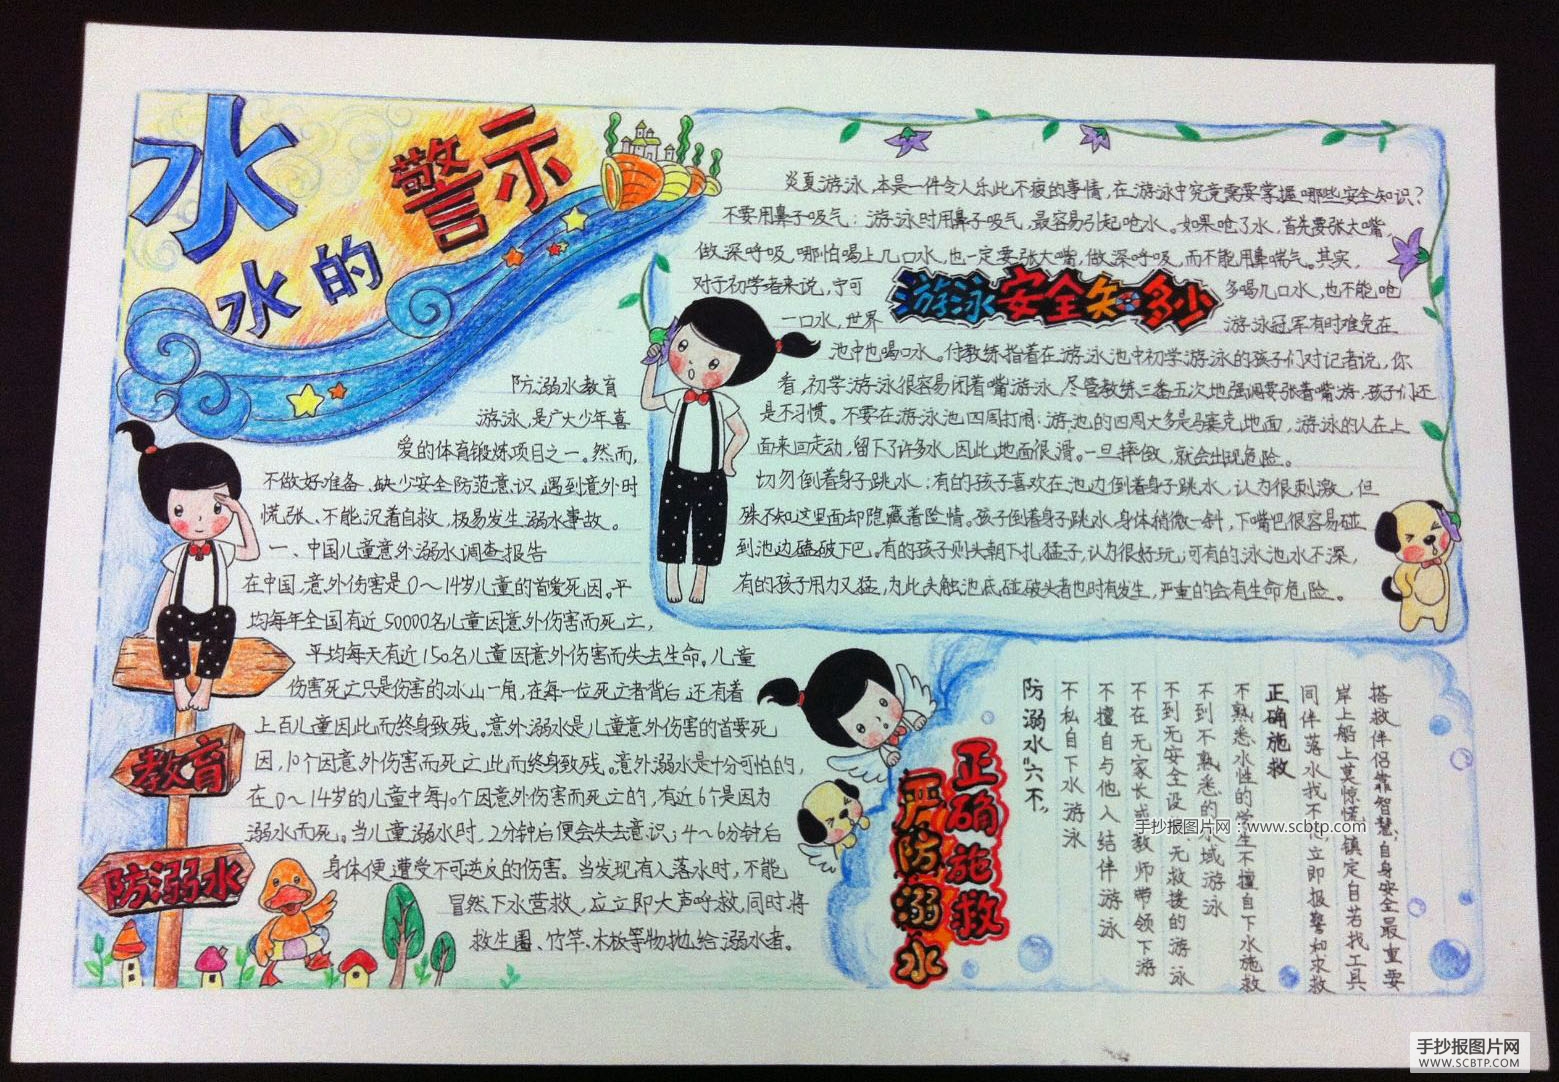 水
水的
警示
防溺水教育
游泳,是广大少年喜
爱的体育锻炼项目之一。然而,
不做好准备、缺少安全防范意识,遇到意外时
慌张、不能沉着自救,极易发生溺水事故。
一、中国儿童意外溺水调查报告
在中国,意外伤害是0～14岁儿童的首爱死因。平
均每年全国有近50000名儿童因意外伤害而死亡,
平均每天有近150名儿童因意外伤害而失去生命。儿童
伤害死亡只是伤害的冰山一角,在每一位死亡者背后,还有着
上百儿童因此而终身致残。意外溺水是儿童意外伤害的首要死
因,10个因意外伤害而死亡此而终身致残。意外溺水是十分可怕的,
在0～14岁的儿童中每10个因意外伤害而死亡的,有近6个是因为
溺水而死。当儿童溺水时,2分钟后便会失去意识;4～6分钟后
身体便遭受不可逆反的伤害。当发现有人落水时,不能
冒然下水营救,应立即大声呼救,同时将
救生圈、竹竿、木板等物抛给溺水者。
教育
防溺水
炎夏游泳,本是一件令人乐此不疲的事情,在游泳中究竟需要掌握哪些安全知识?
不要用鼻子吸气:游泳时用鼻子吸气,最容易引起呛水。如果呛了水,首先要张大嘴,
做深呼吸,哪怕喝上几口水,也一定要张大嘴,做深呼吸,而不能用鼻喘气。其实,
对于初学者来说,宁可
多喝几口水,也不能呛
游泳安全知多少
一口水,世界
游泳冠军有时难免在
池中也喝口水。付教练指着在游泳池中初学游泳的孩子们对记者说,你
看,初学游泳很容易闭着嘴游泳,尽管教练三番五次地强调要张着嘴游,孩子们还
是不习惯。不要在游泳池四周打闹:游泳池的四周大多是马赛克地面,游泳的人在上
面来回走动,留下了许多水,因此,地面很滑。一旦摔倒,就会出现危险。
切勿倒着身子跳水:有的孩子喜欢在池边倒着身子跳水,认为很刺激,但
殊不知这里面却隐藏着险情。孩子倒着身子跳水,身体稍微一斜,下嘴巴很容易碰
到池边磕破下巴。有的孩子则头朝下扎猛子,认为很好玩,可有的泳池水不深,
有的孩子用力又猛,为此头触池底,碰破头者也时有发生,严重的会有生命危险。
正确施救
严防溺水
防溺水"六不"
不私自下水游泳
不擅自与他人结伴游泳
不在无家长或教师带领下游
不到无安全设 无救援的游泳
不到不熟悉的水域游泳
不熟悉水性的学生不擅自下水施救
正确施救
同伴落水我不 立即报警和求救
岸上船上莫惊慌 镇定自若找工具
搭救伴侣靠智慧,自身安全最重要
手抄报图片网:www.scbtp.com
手抄报图片网
WWW.SCBTP.COM